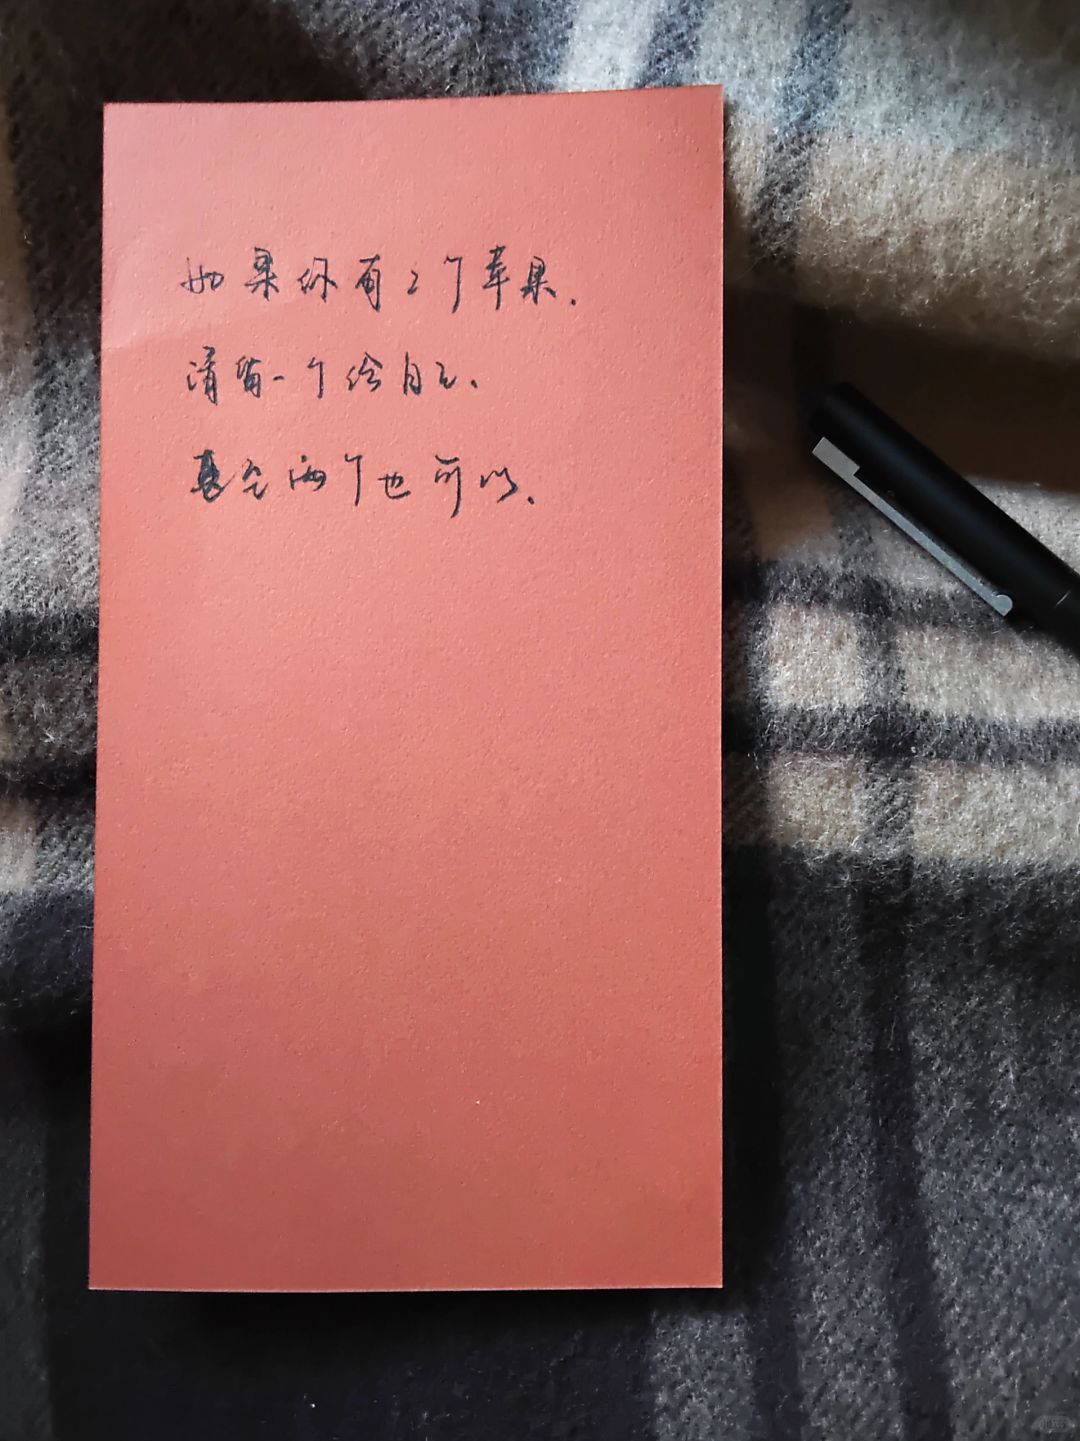 如果你有2个苹果.
请留一个给自己.
息仓两个也可以.